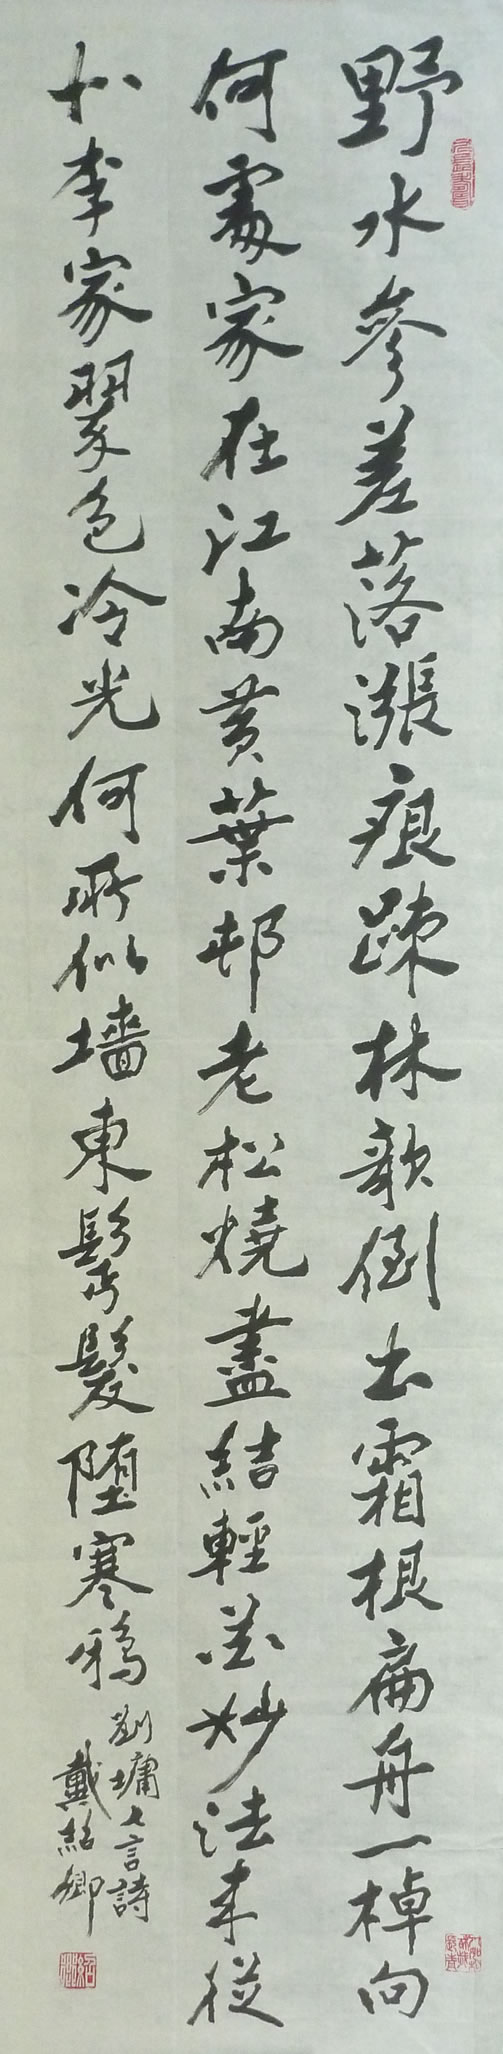 野水參差落漲痕疎林欹倒出霜根扁舟一棹向
何處家在江南黄葉邨老松燒盡結輕花妙法来從
北李家翠色冷光何所似墙東鬒髮墮寒鴉
劉墉七言詩
戴紹卿